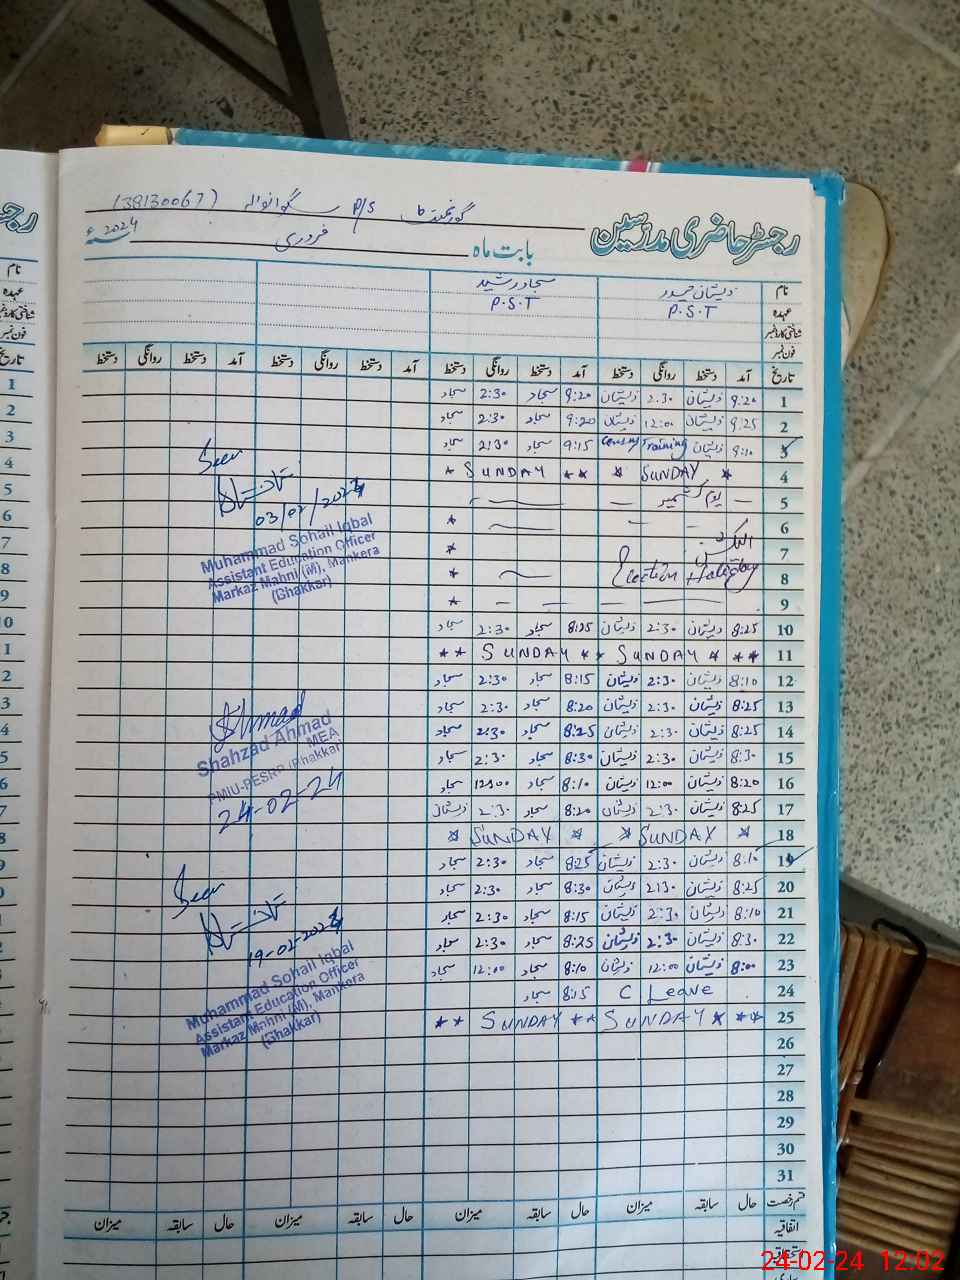 رجسٹر حاضری مدرسین گورنمنٹ P/S گوانوالہ (38130067)
بابت ماہ فروری 2024ء
نام ذیشان حیدر سجاد رشید
عہدہ P.S.T P.S.T
شناختی کارڈ نمبر
فون نمبر
تاریخ آمد دستخط روانگی دستخط آمد دستخط روانگی دستخط آمد دستخط روانگی دستخط آمد دستخط روانگی دستخط
1 9:20 ذیشان 2:30 ذیشان 9:20 سجاد 2:30 سجاد
2 9:25 ذیشان 12:00 ذیشان 9:20 سجاد 2:30 سجاد
3 9:10 ذیشان Training 9:15 سجاد 2:30 سجاد
4 * SUNDAY * ** SUNDAY *
5 — یوم کشمیر —
6 *
7 الیکشن *
8 Election Holiday *
9 *
10 8:25 ذیشان 2:30 ذیشان 8:25 سجاد 2:30 سجاد
11 ** * SUNDAY * * SUNDAY **
12 8:10 ذیشان 2:30 ذیشان 8:15 سجاد 2:30 سجاد
13 8:25 ذیشان 2:30 ذیشان 8:20 سجاد 2:30 سجاد
14 8:25 ذیشان 2:30 ذیشان 8:25 سجاد 2:30 سجاد
15 8:30 ذیشان 2:30 ذیشان 8:30 سجاد 2:30 سجاد
16 8:20 ذیشان 12:00 ذیشان 8:10 سجاد 12:00 سجاد
17 8:25 ذیشان 2:30 ذیشان 8:20 سجاد 2:30 ذیشان
18 * SUNDAY * * SUNDAY *
19 8:10 ذیشان 2:30 ذیشان 8:25 سجاد 2:30 سجاد
20 8:25 ذیشان 2:30 ذیشان 8:30 سجاد 2:30 سجاد
21 8:10 ذیشان 2:30 ذیشان 8:15 سجاد 2:30 سجاد
22 8:30 ذیشان 2:30 ذیشان 8:25 سجاد 2:30 سجاد
23 8:00 ذیشان 12:00 ذیشان 8:10 سجاد 12:00 سجاد
24 C Leave 8:15 سجاد
25 ** * SUNDAY ** SUNDAY **
26
27
28
29
30
31
قسم رخصت حال سابقہ میزان حال سابقہ میزان حال سابقہ میزان حال سابقہ میزان
اتفاقیہ
Seen
03/02/2024
Muhammad Sohail Iqbal
Assistant Education Officer
Markaz Mahni (M), Mankera
(Bhakkar)
Ahmad
Shahzad Ahmad
MEA
PMIU-PESRP (Bhakkar)
24-02-24
Seen
19-02-2024
Muhammad Sohail Iqbal
Assistant Education Officer
Markaz Mahni (M), Mankera
(Bhakkar)
24-02-24 12:02